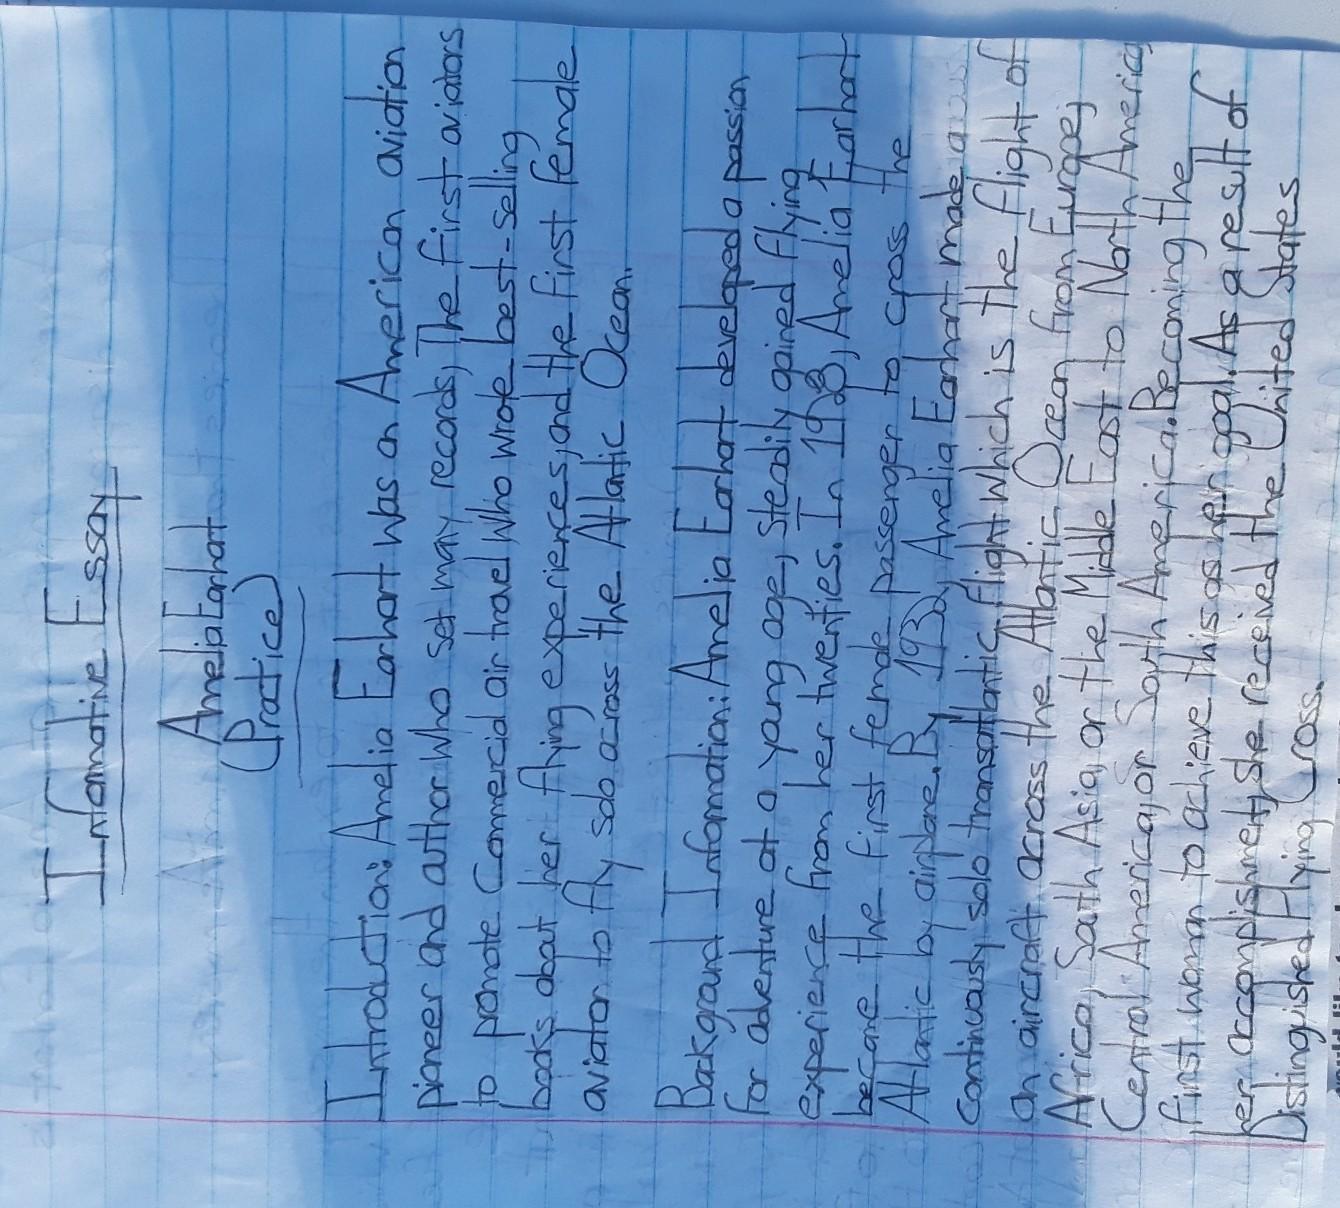 Informative Essay
Amelia Earhart
(Practice)
Introduction: Amelia Earhart was an American aviation
pioneer and author who set may records, The first aviators
to pomote Commercial air travel who wrote best-selling
books about her flying experiences, and the first female
aviator to fly solo across the Atlantic Ocean.
Background Information: Amelia Earhart developed a passion
for adventure at a young age, steadily gained flying
experience from her twenties. In 1928, Amelia Earhart
became the first female passenger to cross the
Atlantic by airplane. By 1932, Amelia Earhart made a
continuously solo transatlantic flight which is the flight of
an aircraft across the Atlantic Ocean from Europe,
Africa, South Asia, or the Middle East to North America,
Central America, or South America. Becoming the
first woman to achieve this as her goal. As a result of
her accomplishment, she received the United States
Distinguished Flying Cross.